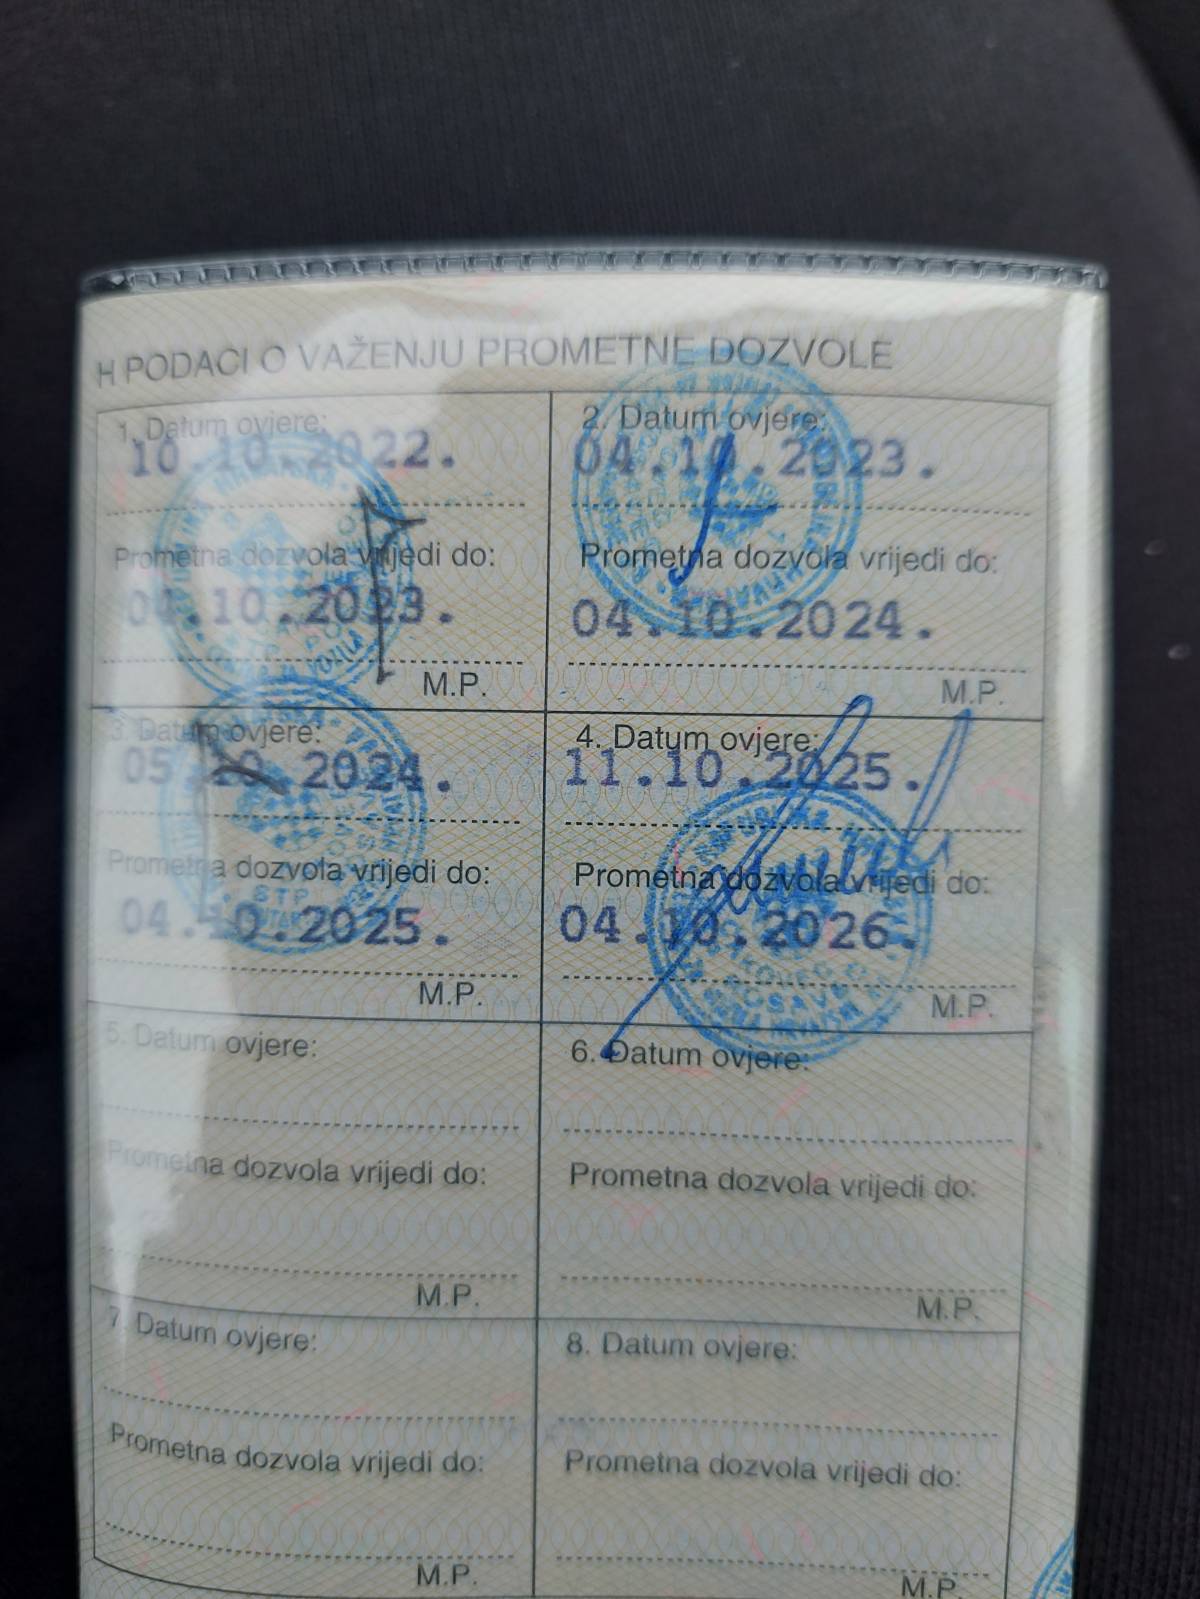 H PODACI O VAŽENJU PROMETNE DOZVOLE
1. Datum ovjere:
10.10.2022.
Prometna dozvola vrijedi do:
04.10.2023.
M.P.
2. Datum ovjere:
04.10.2023.
Prometna dozvola vrijedi do:
04.10.2024.
M.P.
3. Datum ovjere:
05.10.2024.
Prometna dozvola vrijedi do:
04.10.2025.
M.P.
4. Datum ovjere:
11.10.2025.
Prometna dozvola vrijedi do:
04.10.2026.
M.P.
5. Datum ovjere:
Prometna dozvola vrijedi do:
M.P.
6. Datum ovjere:
Prometna dozvola vrijedi do:
M.P.
7. Datum ovjere:
Prometna dozvola vrijedi do:
M.P.
8. Datum ovjere:
Prometna dozvola vrijedi do:
M.P.